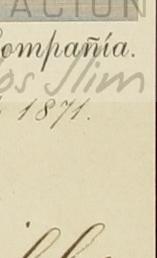 ACIÓN
ompañía.
os Slim
1871.